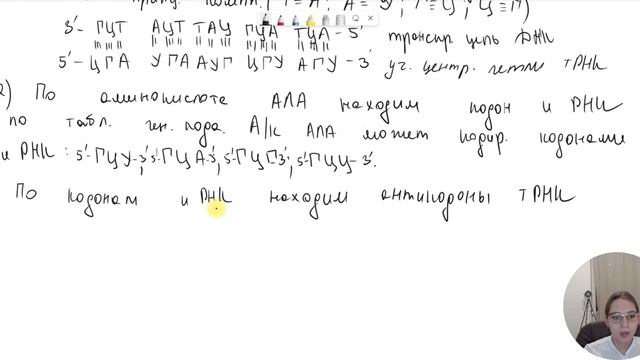 принц. компл. (Г≡Ц
3'- ГЦТ АЦТ ТАЦ ГЦА ТЦА - 5' транскр цепь ДНК
5'- ЦГА УГА АУГ ЦГУ АГУ - 3' уч. центр. петли тРНК
2) По аминокислоте АЛА находим кодон иРНК
по табл. ген. кода. А/к АЛА может кодир. кодонами
иРНК: 5'-ГЦУ-3', 5'-ГЦА-3', 5'-ГЦГ3', 5'-ГЦЦ-3'.
По кодонам иРНК находим антикодоны тРНК